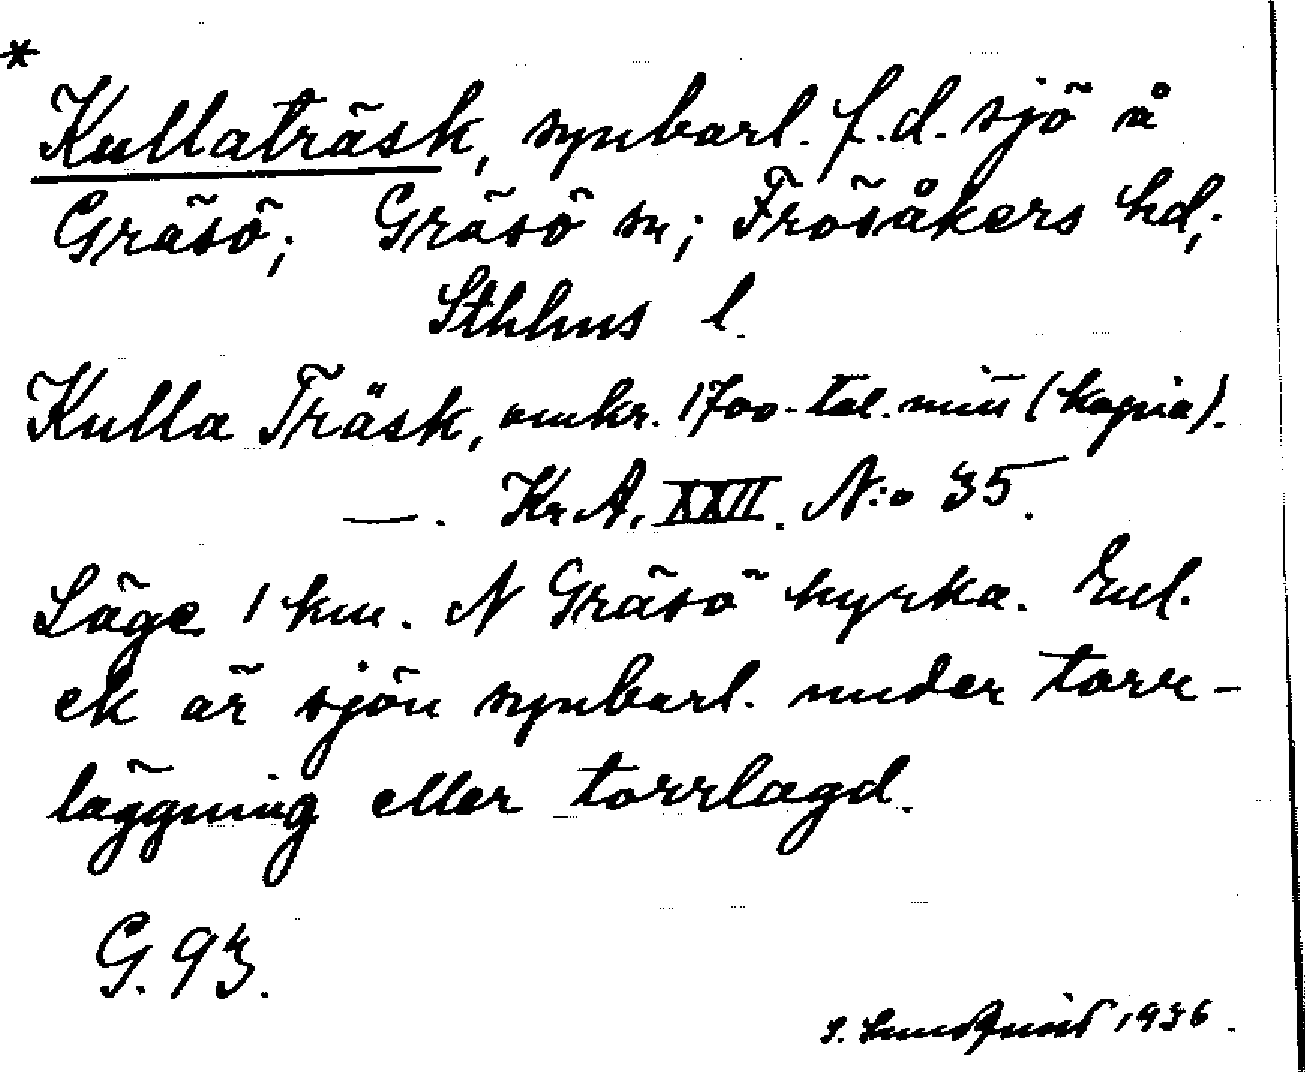 *
Kullaträsk, synbarl. f.d. sjö å
Gräsö; Gräsö sn; Frösåkers hd;
Sthlms l.
Kulla Träsk, omkr. 1700-tal. mitt (kopia).
—. Kr. A. XXII. N:o 35.
Läge 1 km. N Gräsö kyrka. Enl.
ek är sjön synbarl. under torr-
läggning eller torrlagd.
G. 93.
S. Lundquist 1936.